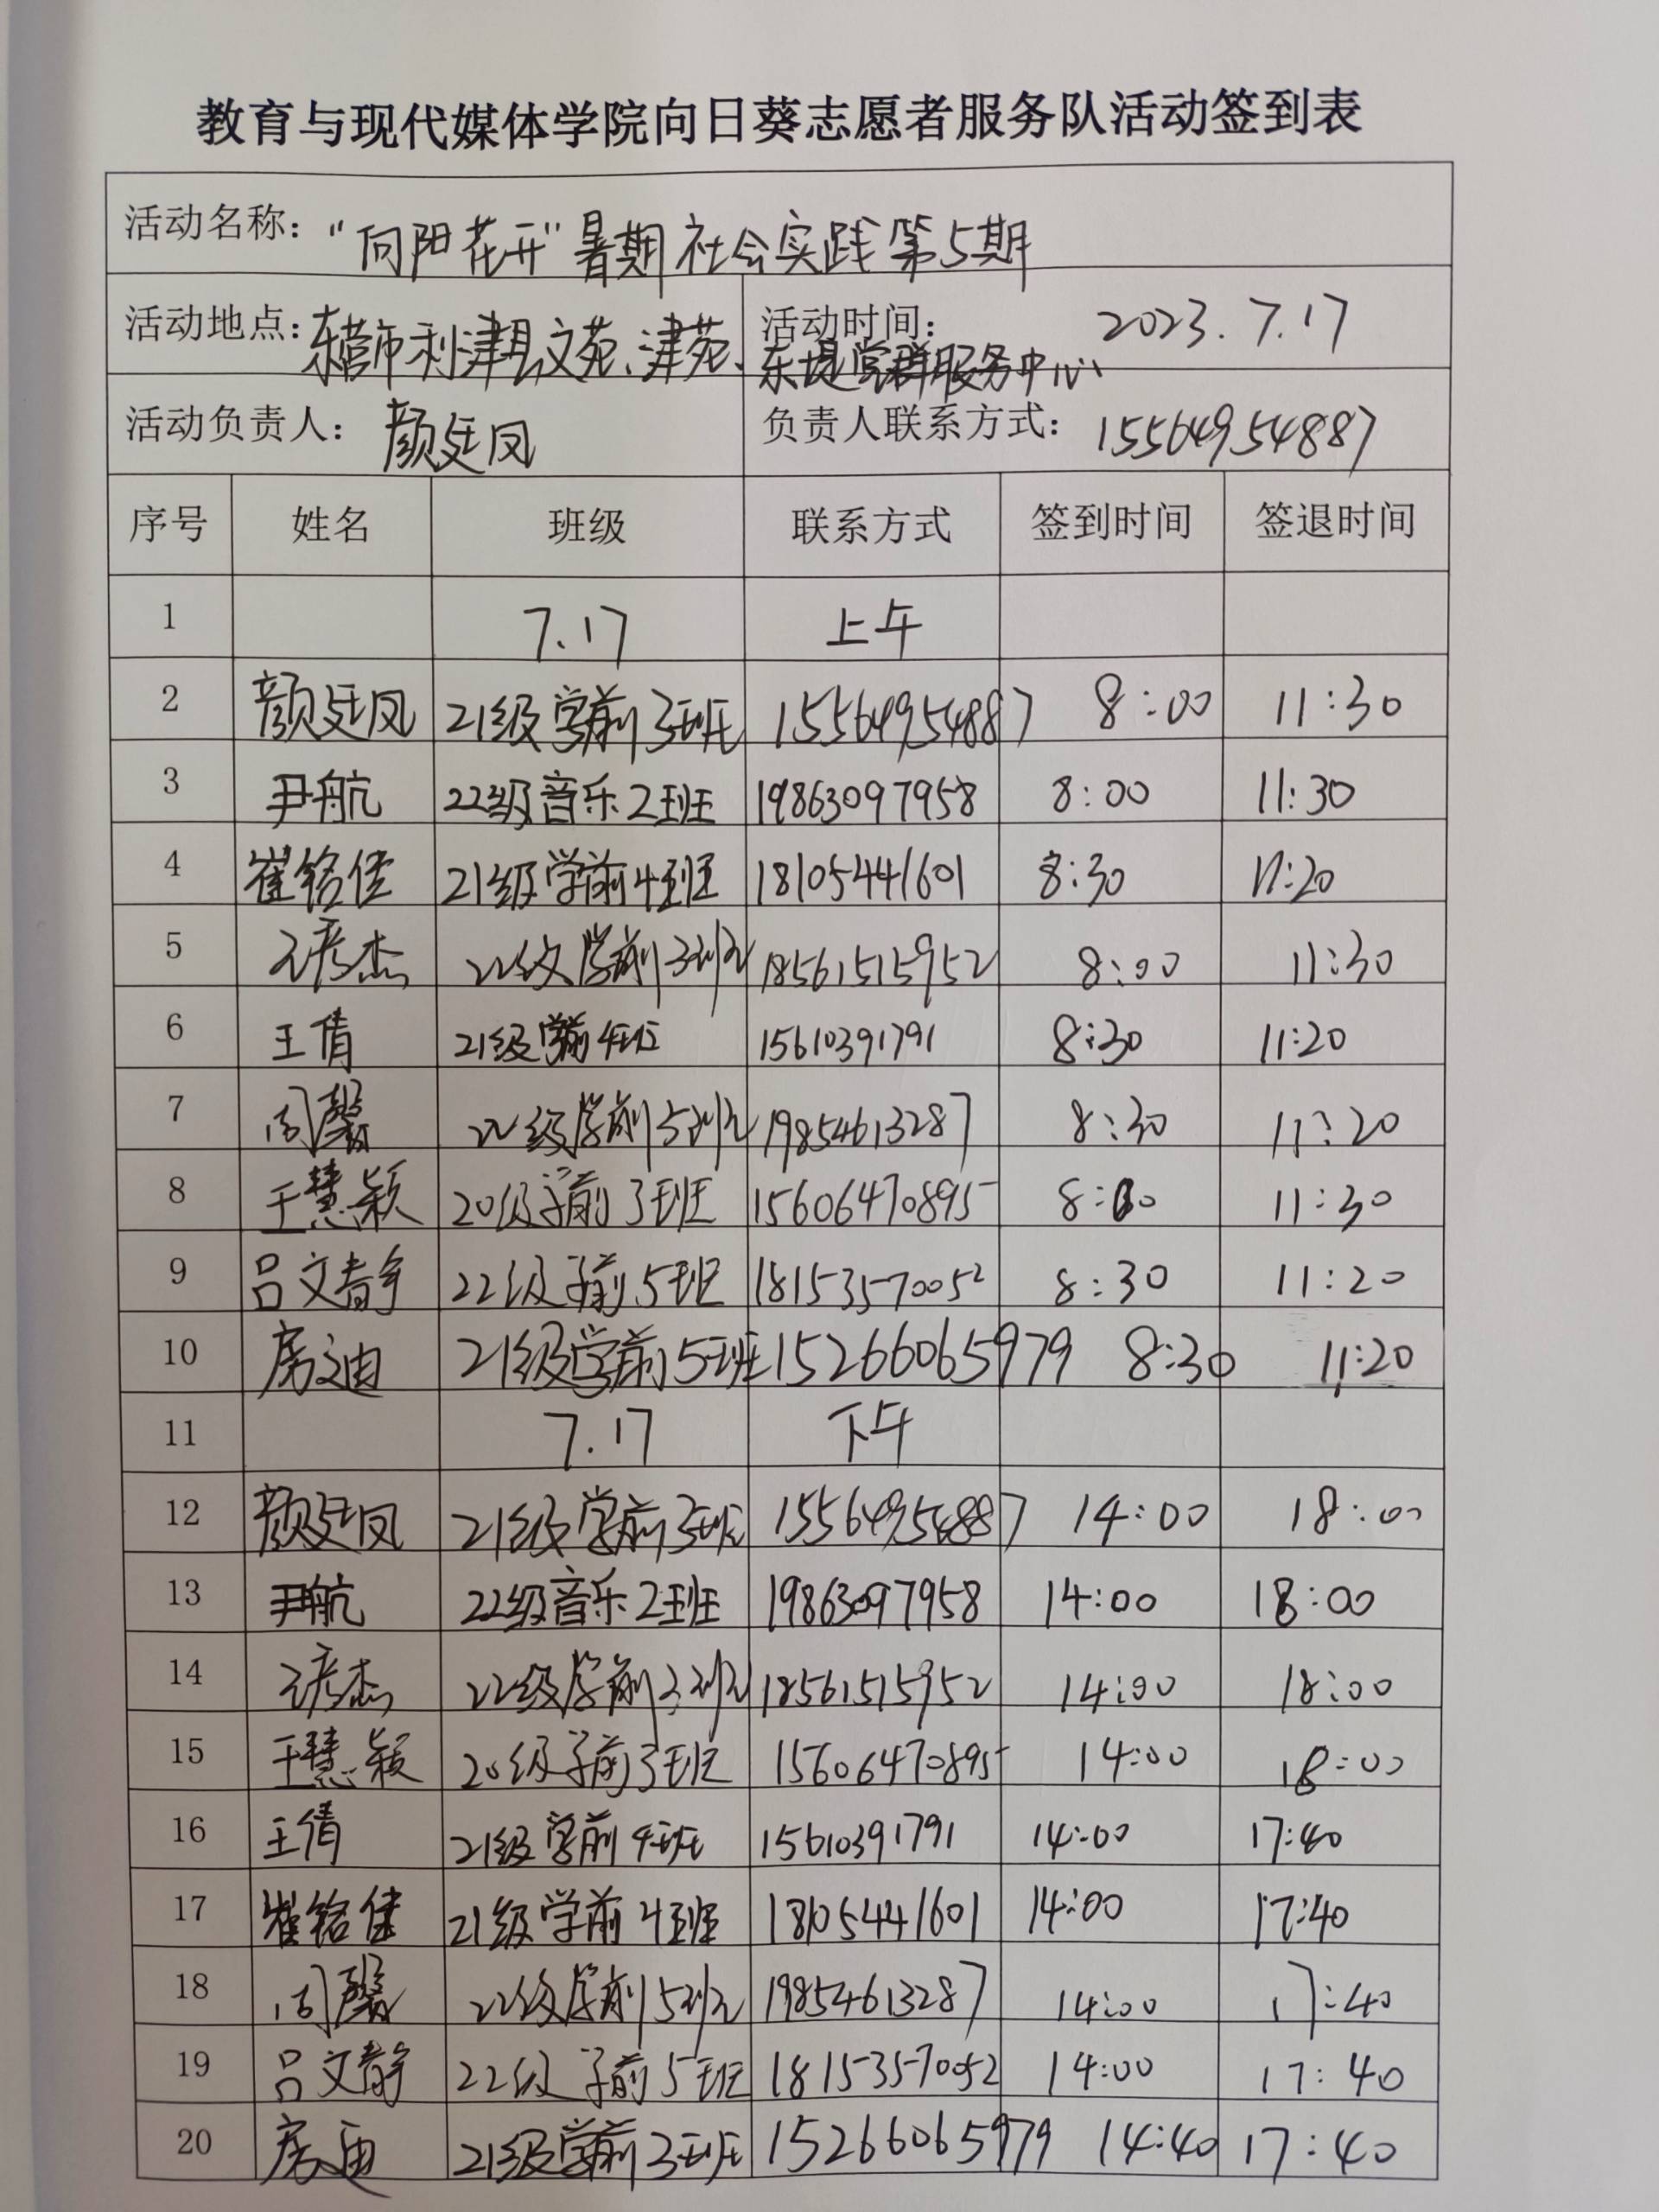 教育与现代媒体学院向日葵志愿者服务队活动签到表
活动名称：“向阳花开”暑期社会实践第5期
活动地点：东营市利津县文苑、津苑、东堤党群服务中心 活动时间：2023.7.17
活动负责人：颜廷凤 负责人联系方式：15564954887
序号 姓名 班级 联系方式 签到时间 签退时间
1 7.17 上午
2 颜廷凤 21级学前3班 15564954887 8:00 11:30
3 尹航 22级音乐2班 19863097958 8:00 11:30
4 崔铭佳 21级学前4班 18105441601 8:30 11:20
5 22级学前3班 18561515952 8:00 11:30
6 王倩 21级学前4班 15610391791 8:30 11:20
7 周馨 22级学前5班 19854613287 8:30 11:20
8 王慧颖 20级学前3班 15606470895 8:00 11:30
9 吕文静 22级学前5班 18153570052 8:30 11:20
10 房文迪 21级学前5班 15266065979 8:30 11:20
11 7.17 下午
12 颜廷凤 21级学前3班 15564954887 14:00 18:00
13 尹航 22级音乐2班 19863097958 14:00 18:00
14 22级学前3班 18561515952 14:00 18:00
15 王慧颖 20级学前3班 15606470895 14:00 18:00
16 王倩 21级学前4班 15610391791 14:00 17:40
17 崔铭佳 21级学前4班 18105441601 14:00 17:40
18 周馨 22级学前5班 19854613287 14:00 17:40
19 吕文静 22级学前5班 18153570052 14:00 17:40
20 房迪 21级学前3班 15266065979 14:40 17:40